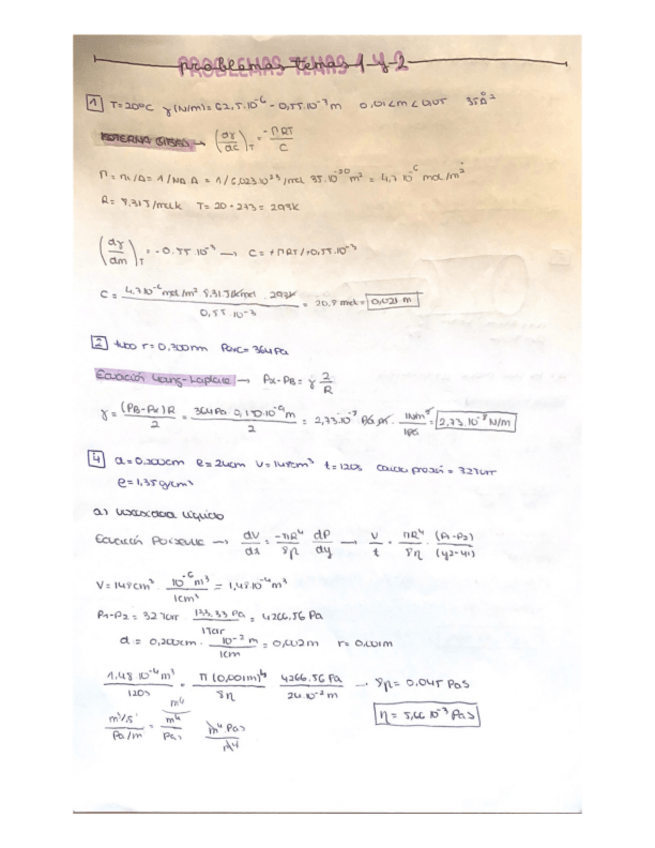 problemas temas 1 y 2
1 T=20ºC γ(N/m)=62,5·10⁻⁶-0,55·10⁻³m 0,01<m<0,05 35Å²
ISOTERMA GIBBS → (dγ/dc)_T = -ΓRT/C
Γ=n/A=1/NA·A=1/6,023·10²³/mol 35·10⁻²⁰m²=4,7·10⁻⁶ mol/m²
R=8,31J/molK T=20+273=293K
(dγ/dm)_T=-0.55·10⁻³ → C=+ΓRT/+0,55·10⁻³
C= 4,7·10⁻⁶mol/m² 8,31J/Kmol·293K / 0,55·10⁻³ = 20,8 = 0,021 m
2 tubo r=0,300mm = 364Pa
Ecuación Young-Laplace → Pα-Pβ=γ 2/R
γ= (Pβ-Pα)R/2 = 364Pa·0,150·10⁻⁹m/2 = 2,73·10⁻⁸ Pa·m · 1N/m²/1Pa = 2,73·10⁻⁸ N/m
4 d=0,200cm l=24cm V=148cm³ t=120s = 32torr
ρ=1,35g/cm³
a) viscosidad líquido
Ecuación Poiseuille → dV/dt = -πR⁴/8η dP/dy → V/t = πR⁴/8η · (P1-P2)/(y2-y1)
V=148cm³ · 10⁻⁶m³/1cm³ = 1,48·10⁻⁴m³
P1-P2=32torr · 133,33 Pa/1Torr = 4266,56 Pa
d=0,200cm · 10⁻²m/1cm = 0,002m r=0,001m
1,48·10⁻⁴m³/120s = π(0,001m)⁴/8η 4266,56 Pa/24·10⁻²m → 8η=0,045 Pa·s
m⁴
m³/s/Pa/m = m⁴/Pa·s m⁴Pa·s/m⁴ η=5,66·10⁻³Pa·s